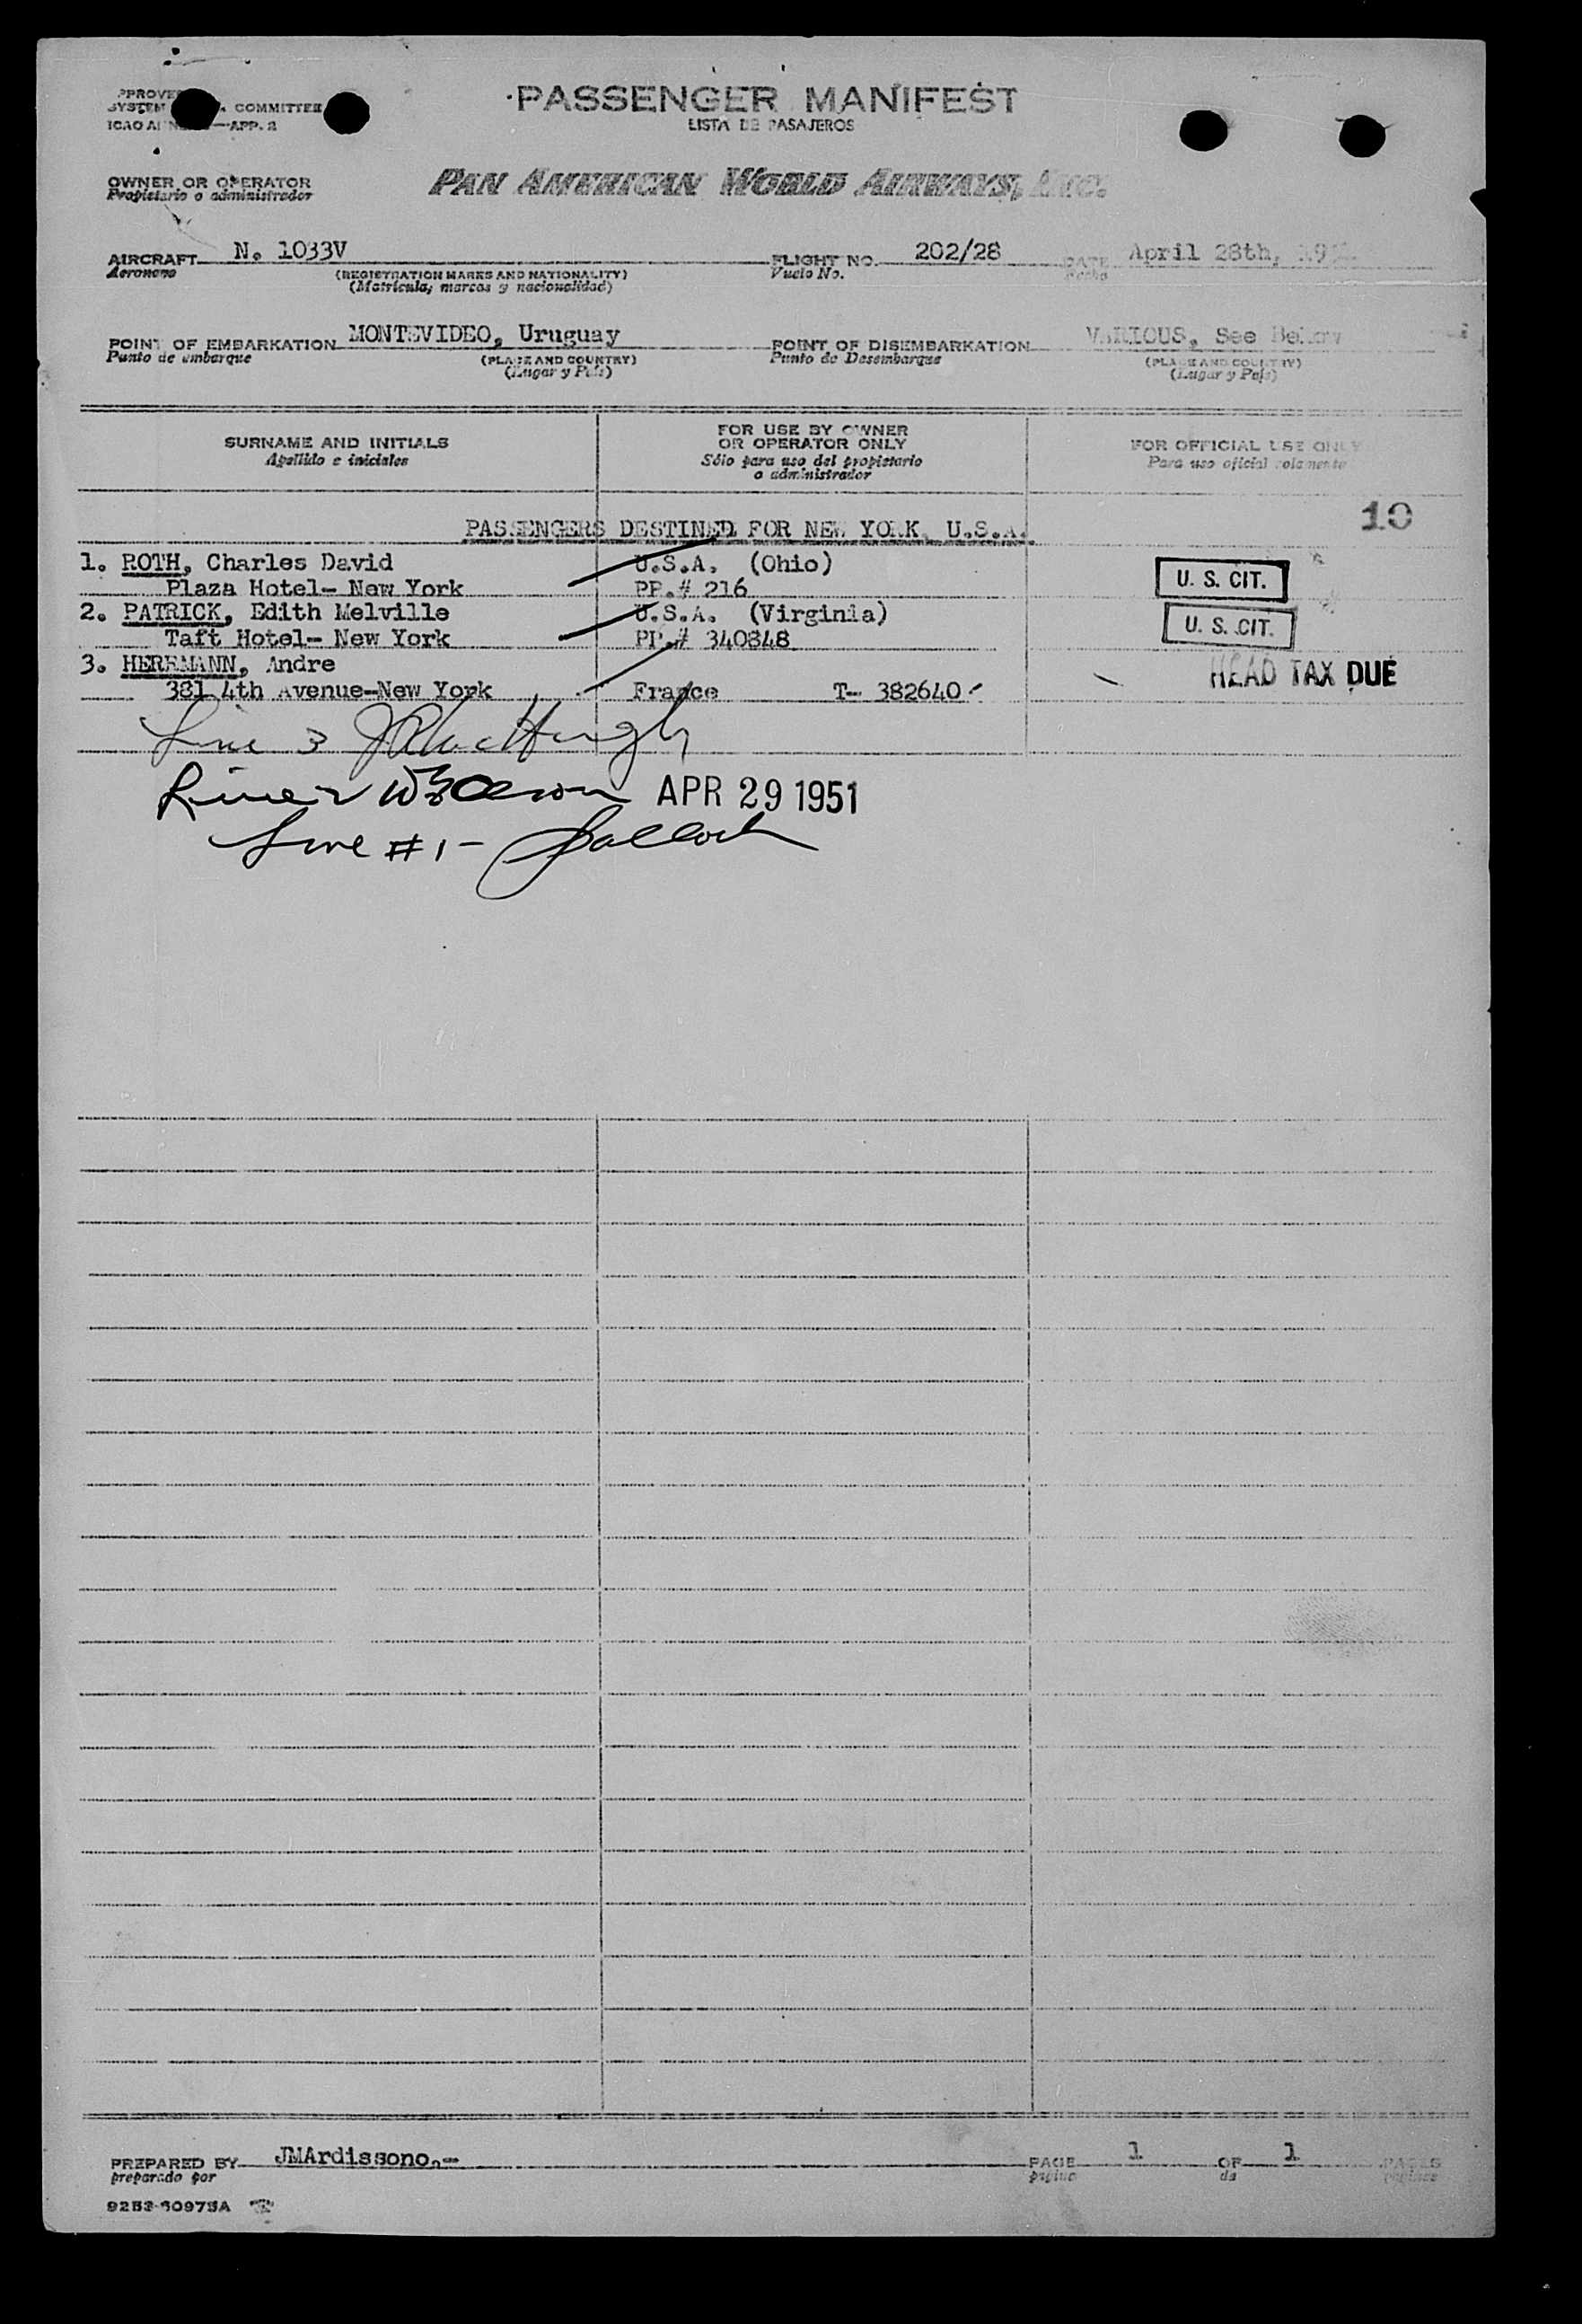 PASSENGER MANIFEST
LISTA DE PASAJEROS
COMMITTEE
APP. 2
OWNER OR OPERATOR
Propietario o administrador
PAN AMERICAN WORLD AIRWAYS, INC.
AIRCRAFT N. 1033V FLIGHT NO. 202/28 DATE April 28th,
Aeronave (REGISTRATION MARKS AND NATIONALITY) Vuelo No. Fecha
(Matrícula, marcas y nacionalidad)
POINT OF EMBARKATION MONTEVIDEO, Uruguay POINT OF DISEMBARKATION VARIOUS, See Below
Punto de embarque (PLACE AND COUNTRY) Punto de Desembarque (PLACE AND COUNTRY)
(Lugar y País) (Lugar y País)
SURNAME AND INITIALS FOR USE BY OWNER OR OPERATOR ONLY FOR OFFICIAL USE ONLY
Apellido e iniciales Sólo para uso del propietario o administrador Para uso oficial solamente
10
PASSENGERS DESTINED FOR NEW YORK, U.S.A.
1. ROTH, Charles David U.S.A. (Ohio) U. S. CIT.
Plaza Hotel- New York PP.# 216
2. PATRICK, Edith Melville U.S.A. (Virginia) U. S. CIT.
Taft Hotel- New York PP.# 340848
3. HERRMANN, Andre HEAD TAX DUE
381 4th Avenue-New York France T- 382640
Line 3
APR 29 1951
Line #1-
PREPARED BY JMArdissono.- PAGE 1 OF 1 PAGES
preparado por página de páginas